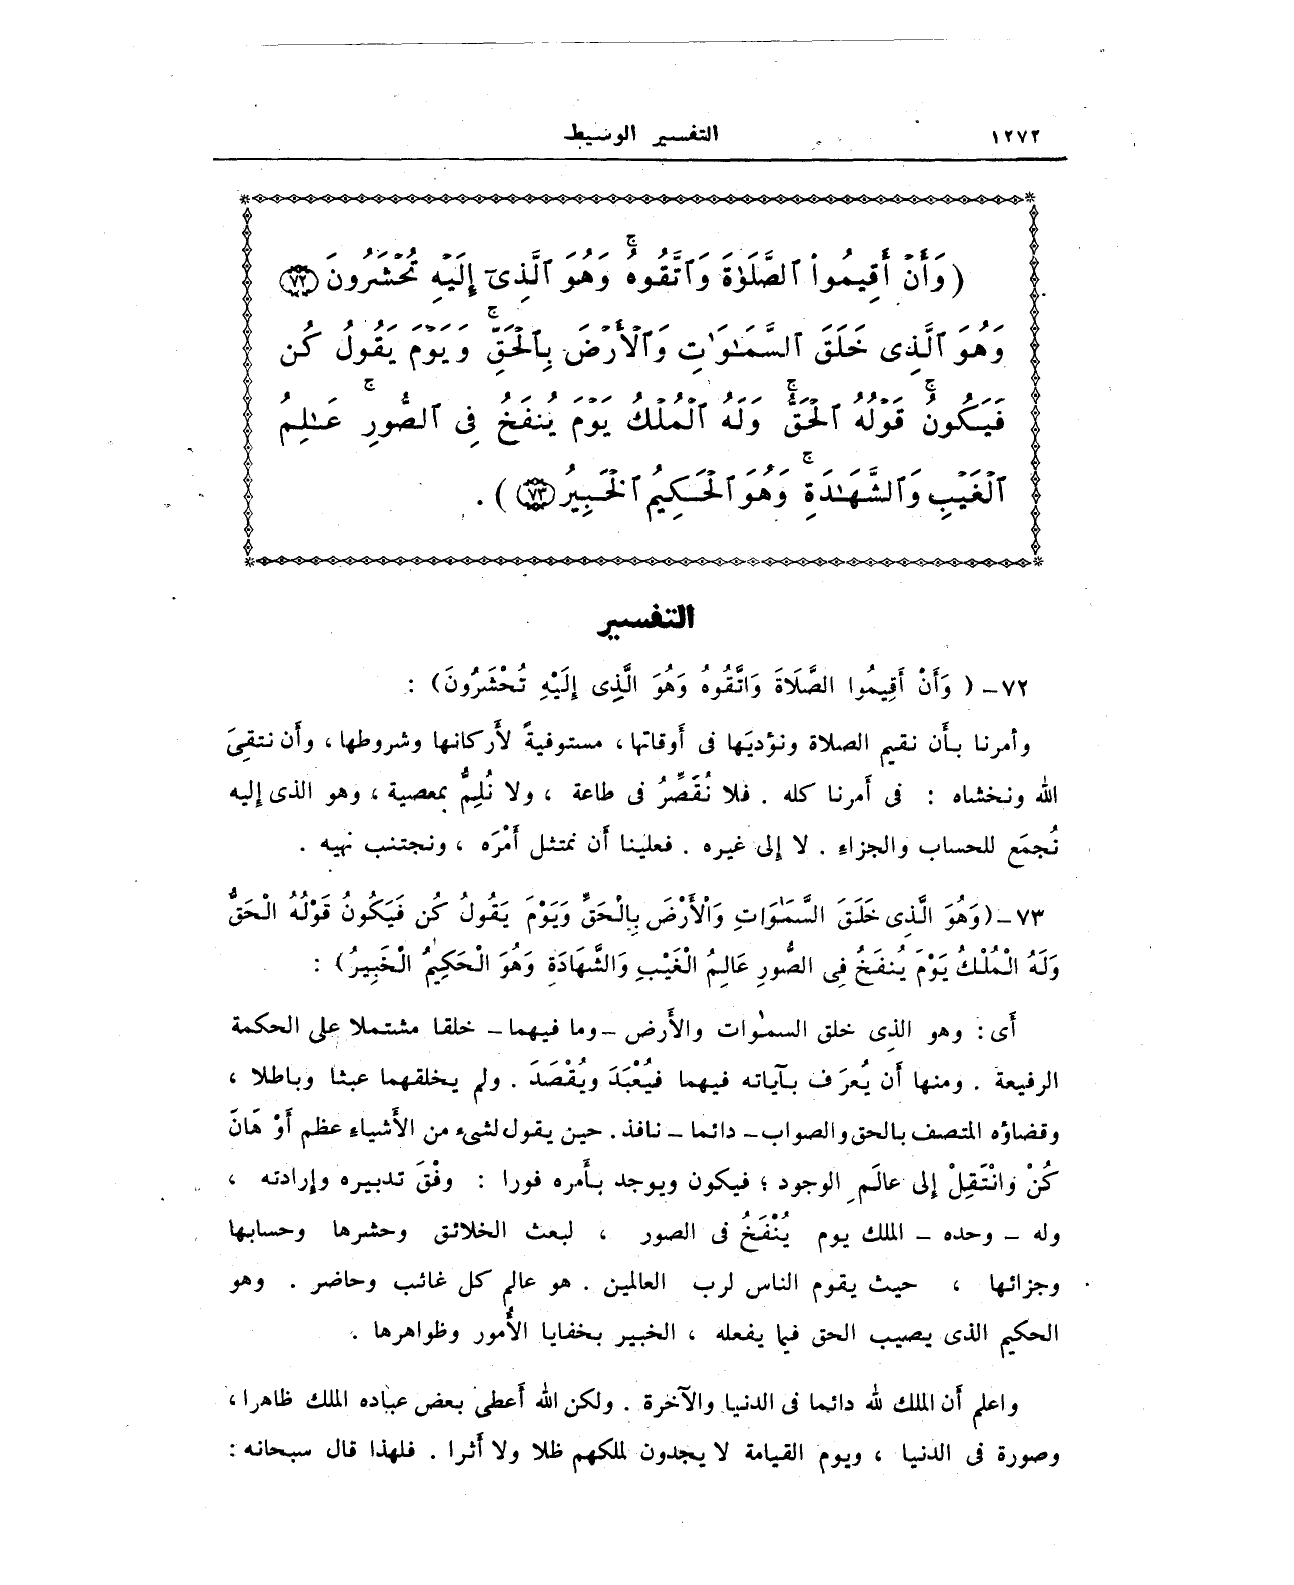 ١٢٧٢
التفسير الوسيط
( وَأَنْ أَقِيمُوا۟ ٱلصَّلَوٰةَ وَٱتَّقُوهُ ۚ وَهُوَ ٱلَّذِىٓ إِلَيْهِ تُحْشَرُونَ ٧٢
وَهُوَ ٱلَّذِى خَلَقَ ٱلسَّمَـٰوَٰتِ وَٱلْأَرْضَ بِٱلْحَقِّ ۚ وَيَوْمَ يَقُولُ كُن
فَيَكُونُ ۚ قَوْلُهُ ٱلْحَقُّ ۚ وَلَهُ ٱلْمُلْكُ يَوْمَ يُنفَخُ فِى ٱلصُّورِ ۚ عَـٰلِمُ
ٱلْغَيْبِ وَٱلشَّهَـٰدَةِ ۚ وَهُوَ ٱلْحَكِيمُ ٱلْخَبِيرُ ٧٣ ) .
التفسير
٧٢ – ( وَأَنْ أَقِيمُوا الصَّلَاةَ وَاتَّقُوهُ وَهُوَ الَّذِى إِلَيْهِ تُحْشَرُونَ ) :
وأمرنا بأن نقيم الصلاة ونؤديَها فى أوقاتها، مستوفيةً لأركانها وشروطها، وأن نتقىَ
الله ونخشاه : فى أمرنا كله . فلا نُقَصِّرُ فى طاعة ، ولا نُلِمُّ بمعصية ، وهو الذى إليه
نُجمَع للحساب والجزاء . لا إلى غيره . فعلينا أن نمتثل أمْرَه ، ونجتنب نهيه .
٧٣ – ( وَهُوَ الَّذِى خَلَقَ السَّمَٰوَاتِ وَالْأَرْضَ بِالْحَقِّ وَيَوْمَ يَقُولُ كُن فَيَكُونُ قَوْلُهُ الْحَقُّ
وَلَهُ الْمُلْكُ يَوْمَ يُنفَخُ فِى الصُّورِ عَالِمُ الْغَيْبِ وَالشَّهَادَةِ وَهُوَ الْحَكِيمُ الْخَبِيرُ ) :
أى : وهو الذى خلق السمٰوات والأرض – وما فيهما – خلقا مشتملا على الحكمة
الرفيعة . ومنها أن يُعرَف بآياته فيهما فيُعْبَدَ ويُقْصَدَ . ولم يخلقهما عبثا وباطلا ،
وقضاؤه المتصف بالحق والصواب – دائما – نافذ . حين يقول لشىء من الأشياء عظم أَوْ هَانَ
كُنْ وَانْتَقِلْ إلى عالَمِ الوجود ؛ فيكون ويوجد بأمره فورا : وفْقَ تدبيره وإرادته ،
وله – وحده – الملك يوم يُنْفَخُ فى الصور ، لبعث الخلائق وحشرها وحسابها
وجزائها ، حيث يقوم الناس لرب العالمين . هو عالم كل غائب وحاضر . وهو
الحكيم الذى يصيب الحق فيما يفعله ، الخبير بخفايا الأُمور وظواهرها .
واعلم أَن الملك لله دائما فى الدنيا والآخرة . ولكن الله أَعطى بعض عباده الملك ظاهرا ،
وصورة فى الدنيا ، ويوم القيامة لا يجدون لملكهم ظلا ولا أَثرا . فلهذا قال سبحانه :